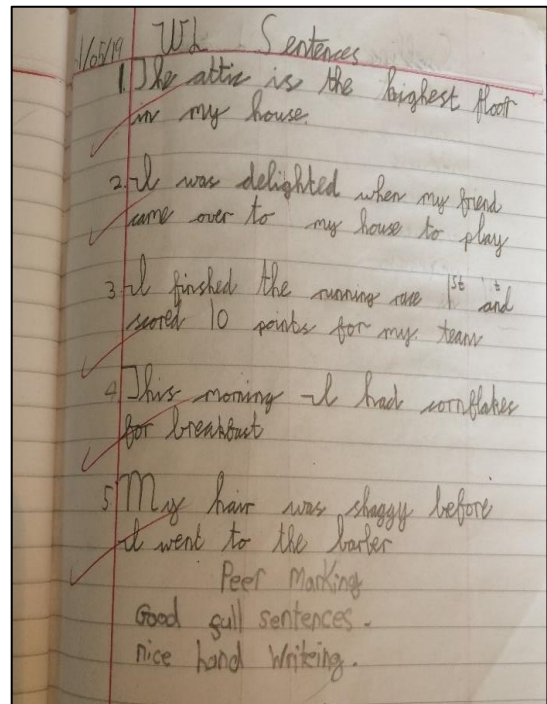 1/05/19 WL Sentences
1. The attic is the highest floor
in my house.
2. I was delighted when my friend
came over to my house to play
3. I finished the running race 1st and
scored 10 points for my team
4. This morning I had cornflakes
for breakfast
5. My hair was shaggy before
I went to the barber
Peer Marking
Good full sentences.
nice hand Writeing.